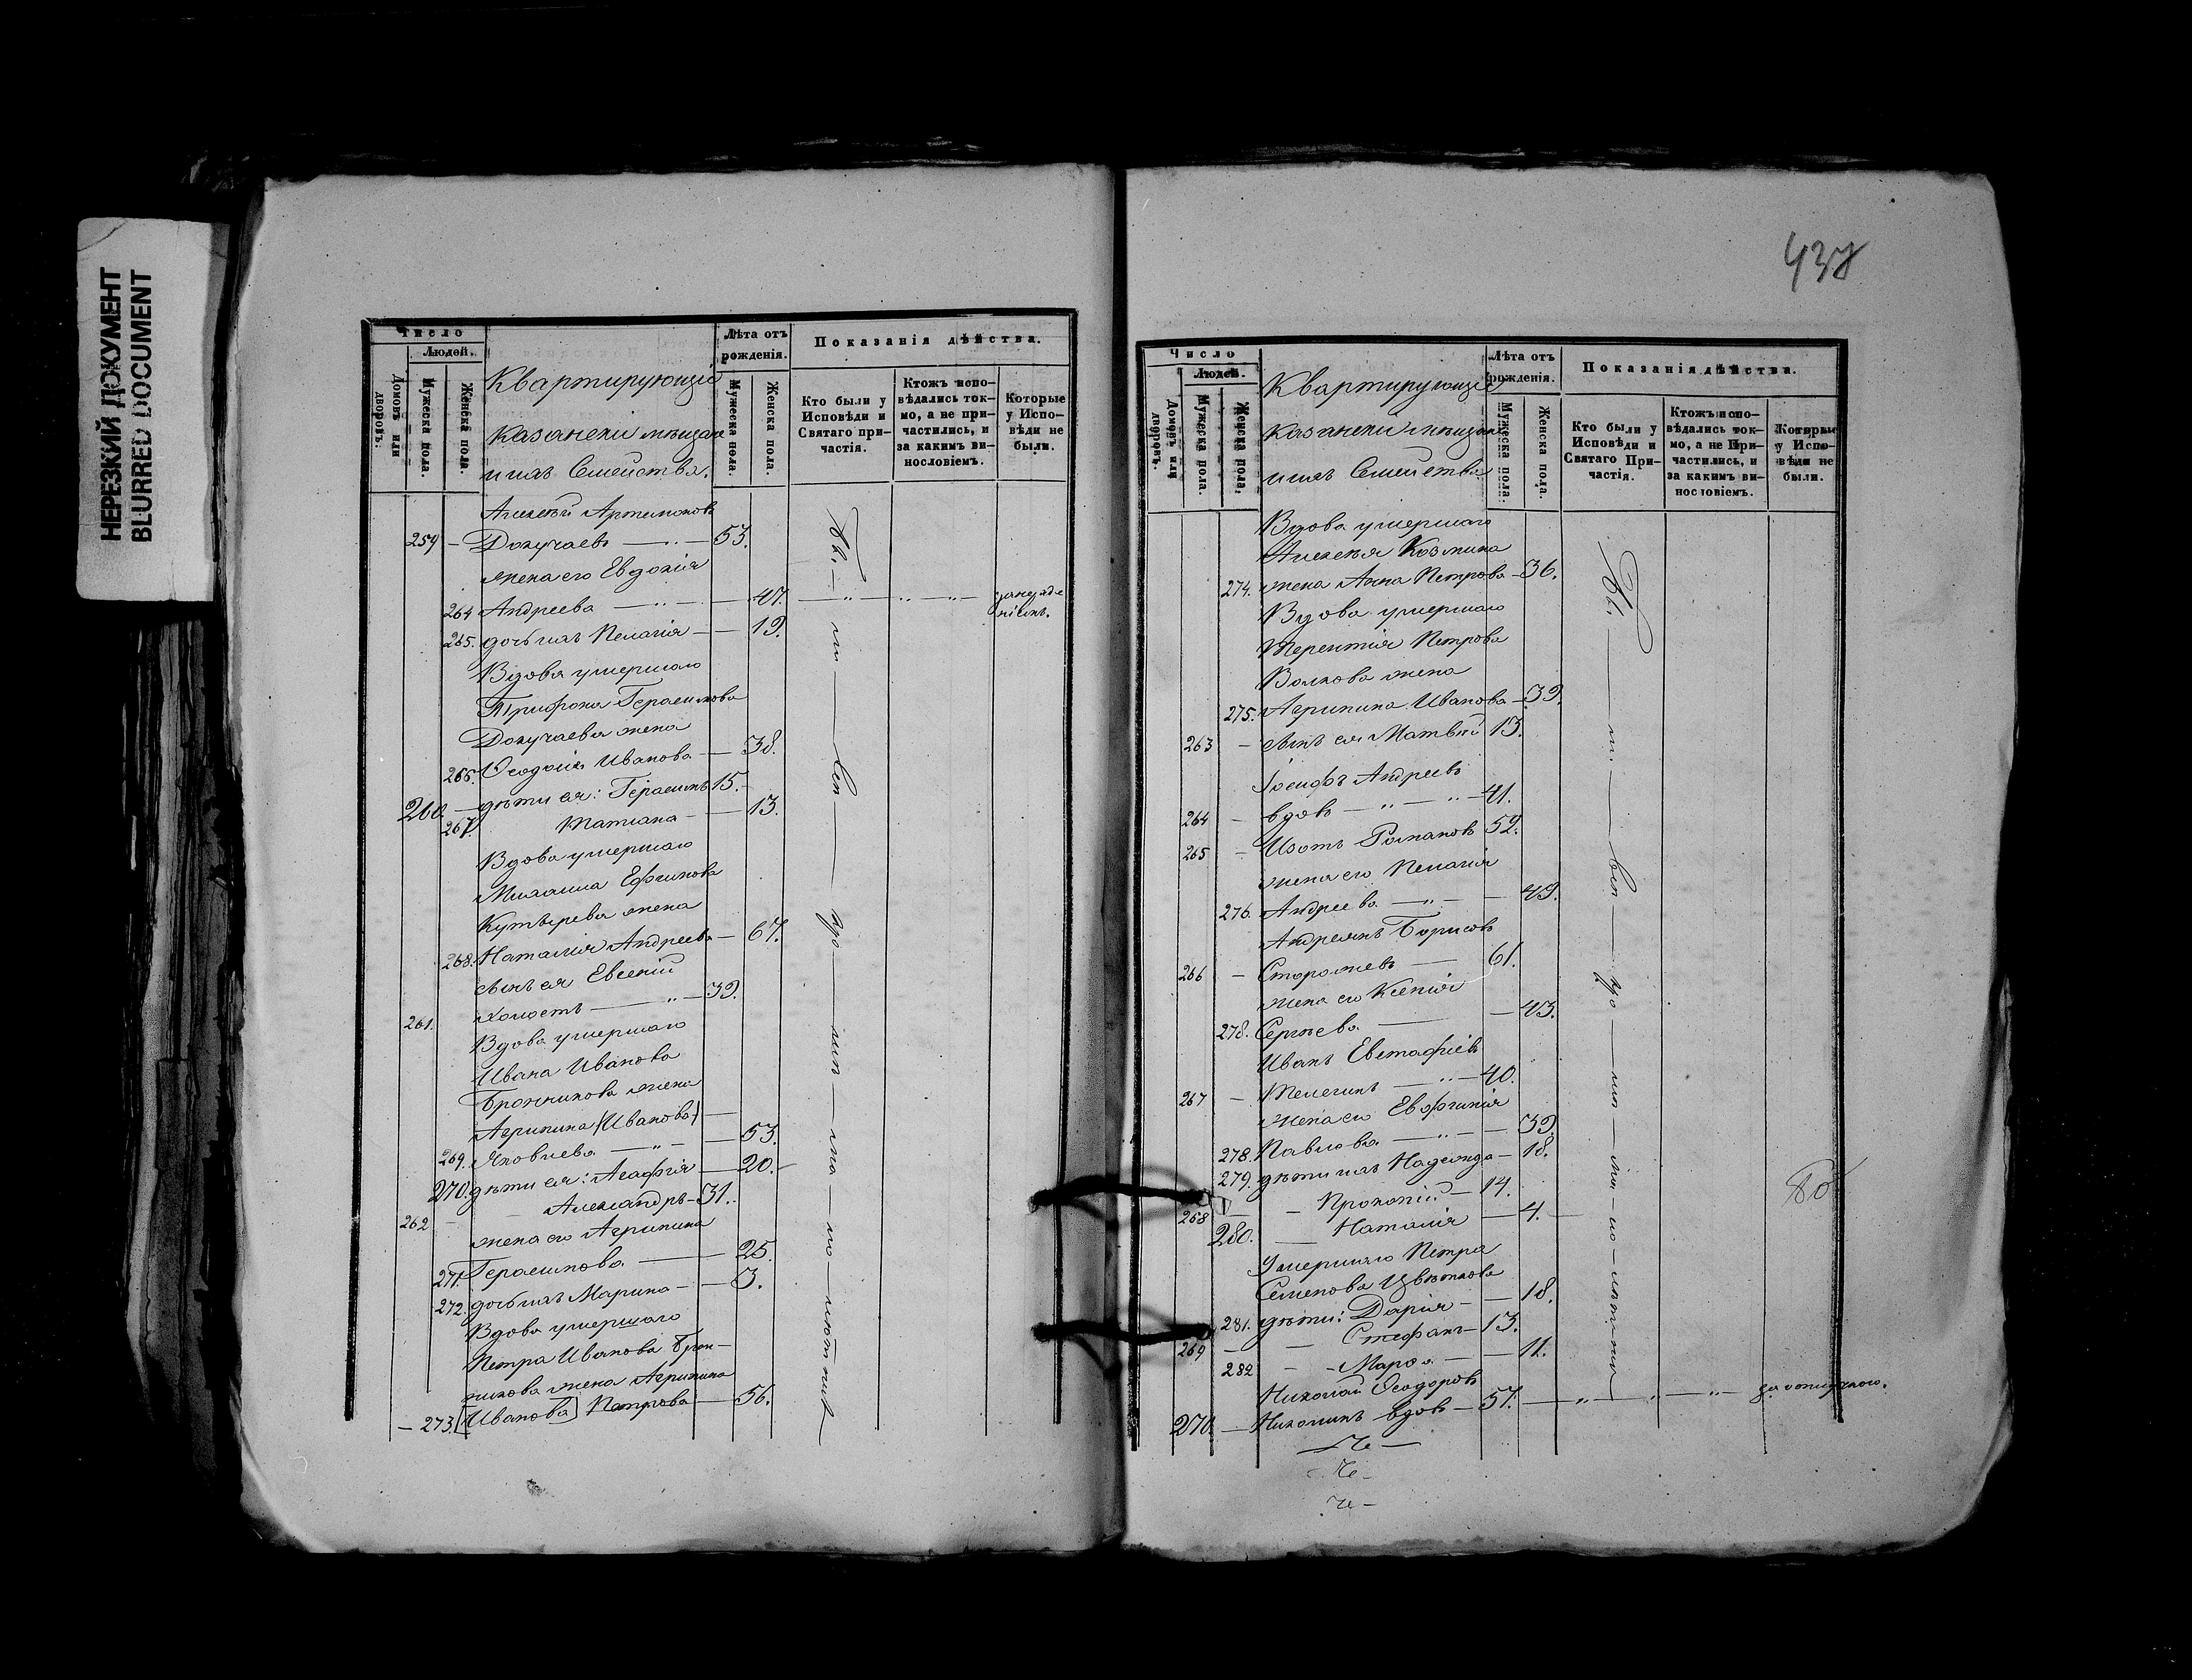 НЕРЕЗКИЙ ДОКУМЕНТ
BLURRED DOCUMENT
Число
Людей.
Домовъ или дворовъ.
Мужеска пола.
Женска пола.
Квартирующіе
казанскіи мѣщане
и ихъ Семейства.
Лѣта отъ рожденія.
Мужеска пола.
Женска пола.
Показанія дѣйства.
Кто были у Исповѣди и Святаго причастія.
Ктожъ исповѣдались токмо, а не причастились, и за какимъ винословіемъ.
Которые у Исповѣди не были.
Алексѣй Артемоновъ
259 — Докучаевъ — „ — 53.
жена его Евдокія
264 Андреева — „ — 47. — „ — „ — „ —
265. дочь ихъ Пелагія — — 19.
Вдова умершаго
Трифона Герасимова
Докучаева жена
266. Ѳеодосія Иванова — 38.
260 — дѣти ея: Герасимъ 15.
267. Татіана — — 13.
Вдова умершаго
Михаила Ефимова
Кутырева жена
268. Наталія Андреева — 67.
сынъ ея Евсеній
261. холостъ — „ — 39.
Вдова умершаго
Ивана Иванова
Бронникова жена
Агрипина (Иванова) —
269. Яковлева — „ — — 53.
270. дѣти ея: Агафія — 20. —
262 — Александръ — 31.
жена его Агрипина
271. Герасимова — 25.
272. дочь ихъ Марина — — 3.
Вдова умершаго
Петра Иванова Брон-
никова жена Агрипина
— 273. [Иванова] Петрова — 56.
437
Число
Людей.
Домовъ или дворовъ.
Мужеска пола.
Женска пола.
Квартирующіе
казанскіи мѣщане
и ихъ Семейства
Лѣта отъ рожденія.
Мужеска пола.
Женска пола.
Показанія дѣйства.
Кто были у Исповѣди и Святаго Причастія.
Ктожъ исповѣдались токмо, а не Причастились, и за какимъ винословіемъ.
Которые у Исповѣди не были.
Вдова умершаго
Алексѣя Козмина
274. жена Анна Петрова — 36.
Вдова умершаго
Терентія Петрова
Волкова жена
275. Агрипина Иванова — 39.
263 — сынъ ея Матвѣй 13.
Іосифъ Андреевъ
264 — вдовъ — „ — „ — 41.
265 — Изотъ Романовъ 52.
жена его Пелагія
276. Андреева — „ — — 49.
Андреянъ Борисовъ
266 — Сторожевъ — 61.
жена его Ксенія
278. Сергѣева — — 43.
Иванъ Евстафіевъ
267 — Телегинъ — „ — 40.
жена его Евфимія
278. Павлова — „ — — 39.
279. дѣти ихъ Надежда — 18.
268 — — Прокопій — 14.
280. — Наталія — 4. —
Умершаго Петра
Семенова Цвѣткова
281. дѣти: Дарія — — 18.
269 — — Стефанъ — 13.
282 — — Марѳа — — 11.
Николай Ѳеодоровъ
270 — Никотинъ вдовъ — 57. — „ — „ — „ —